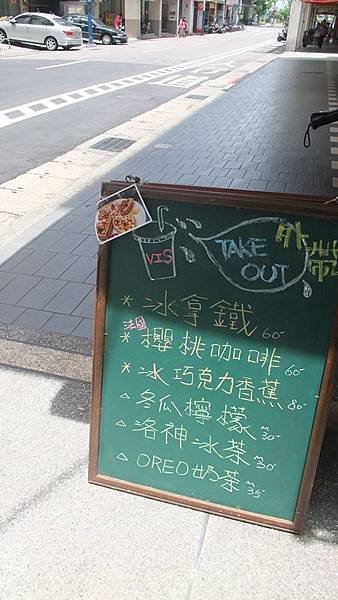 VIS
TAKE OUT 外帶
* 冰拿鐵 60
法國
* 櫻桃咖啡 60
* 冰巧克力香蕉 80
△ 冬瓜檸檬 30
△ 洛神冰茶 30
△ OREO奶茶 35